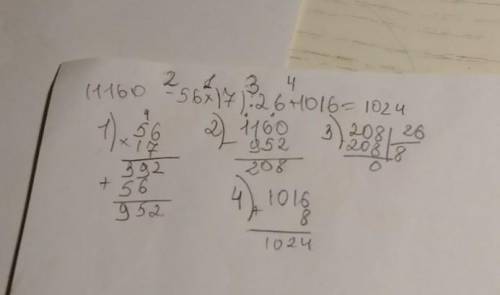 (1160 - 56 × 17) : 26 + 1016 = 1024
2 1 3 4
1) 56 × 17 392 + 56 952
2) 1160 - 952 208
3) 208 26 208 8 0
4) 1016 + 8 1024